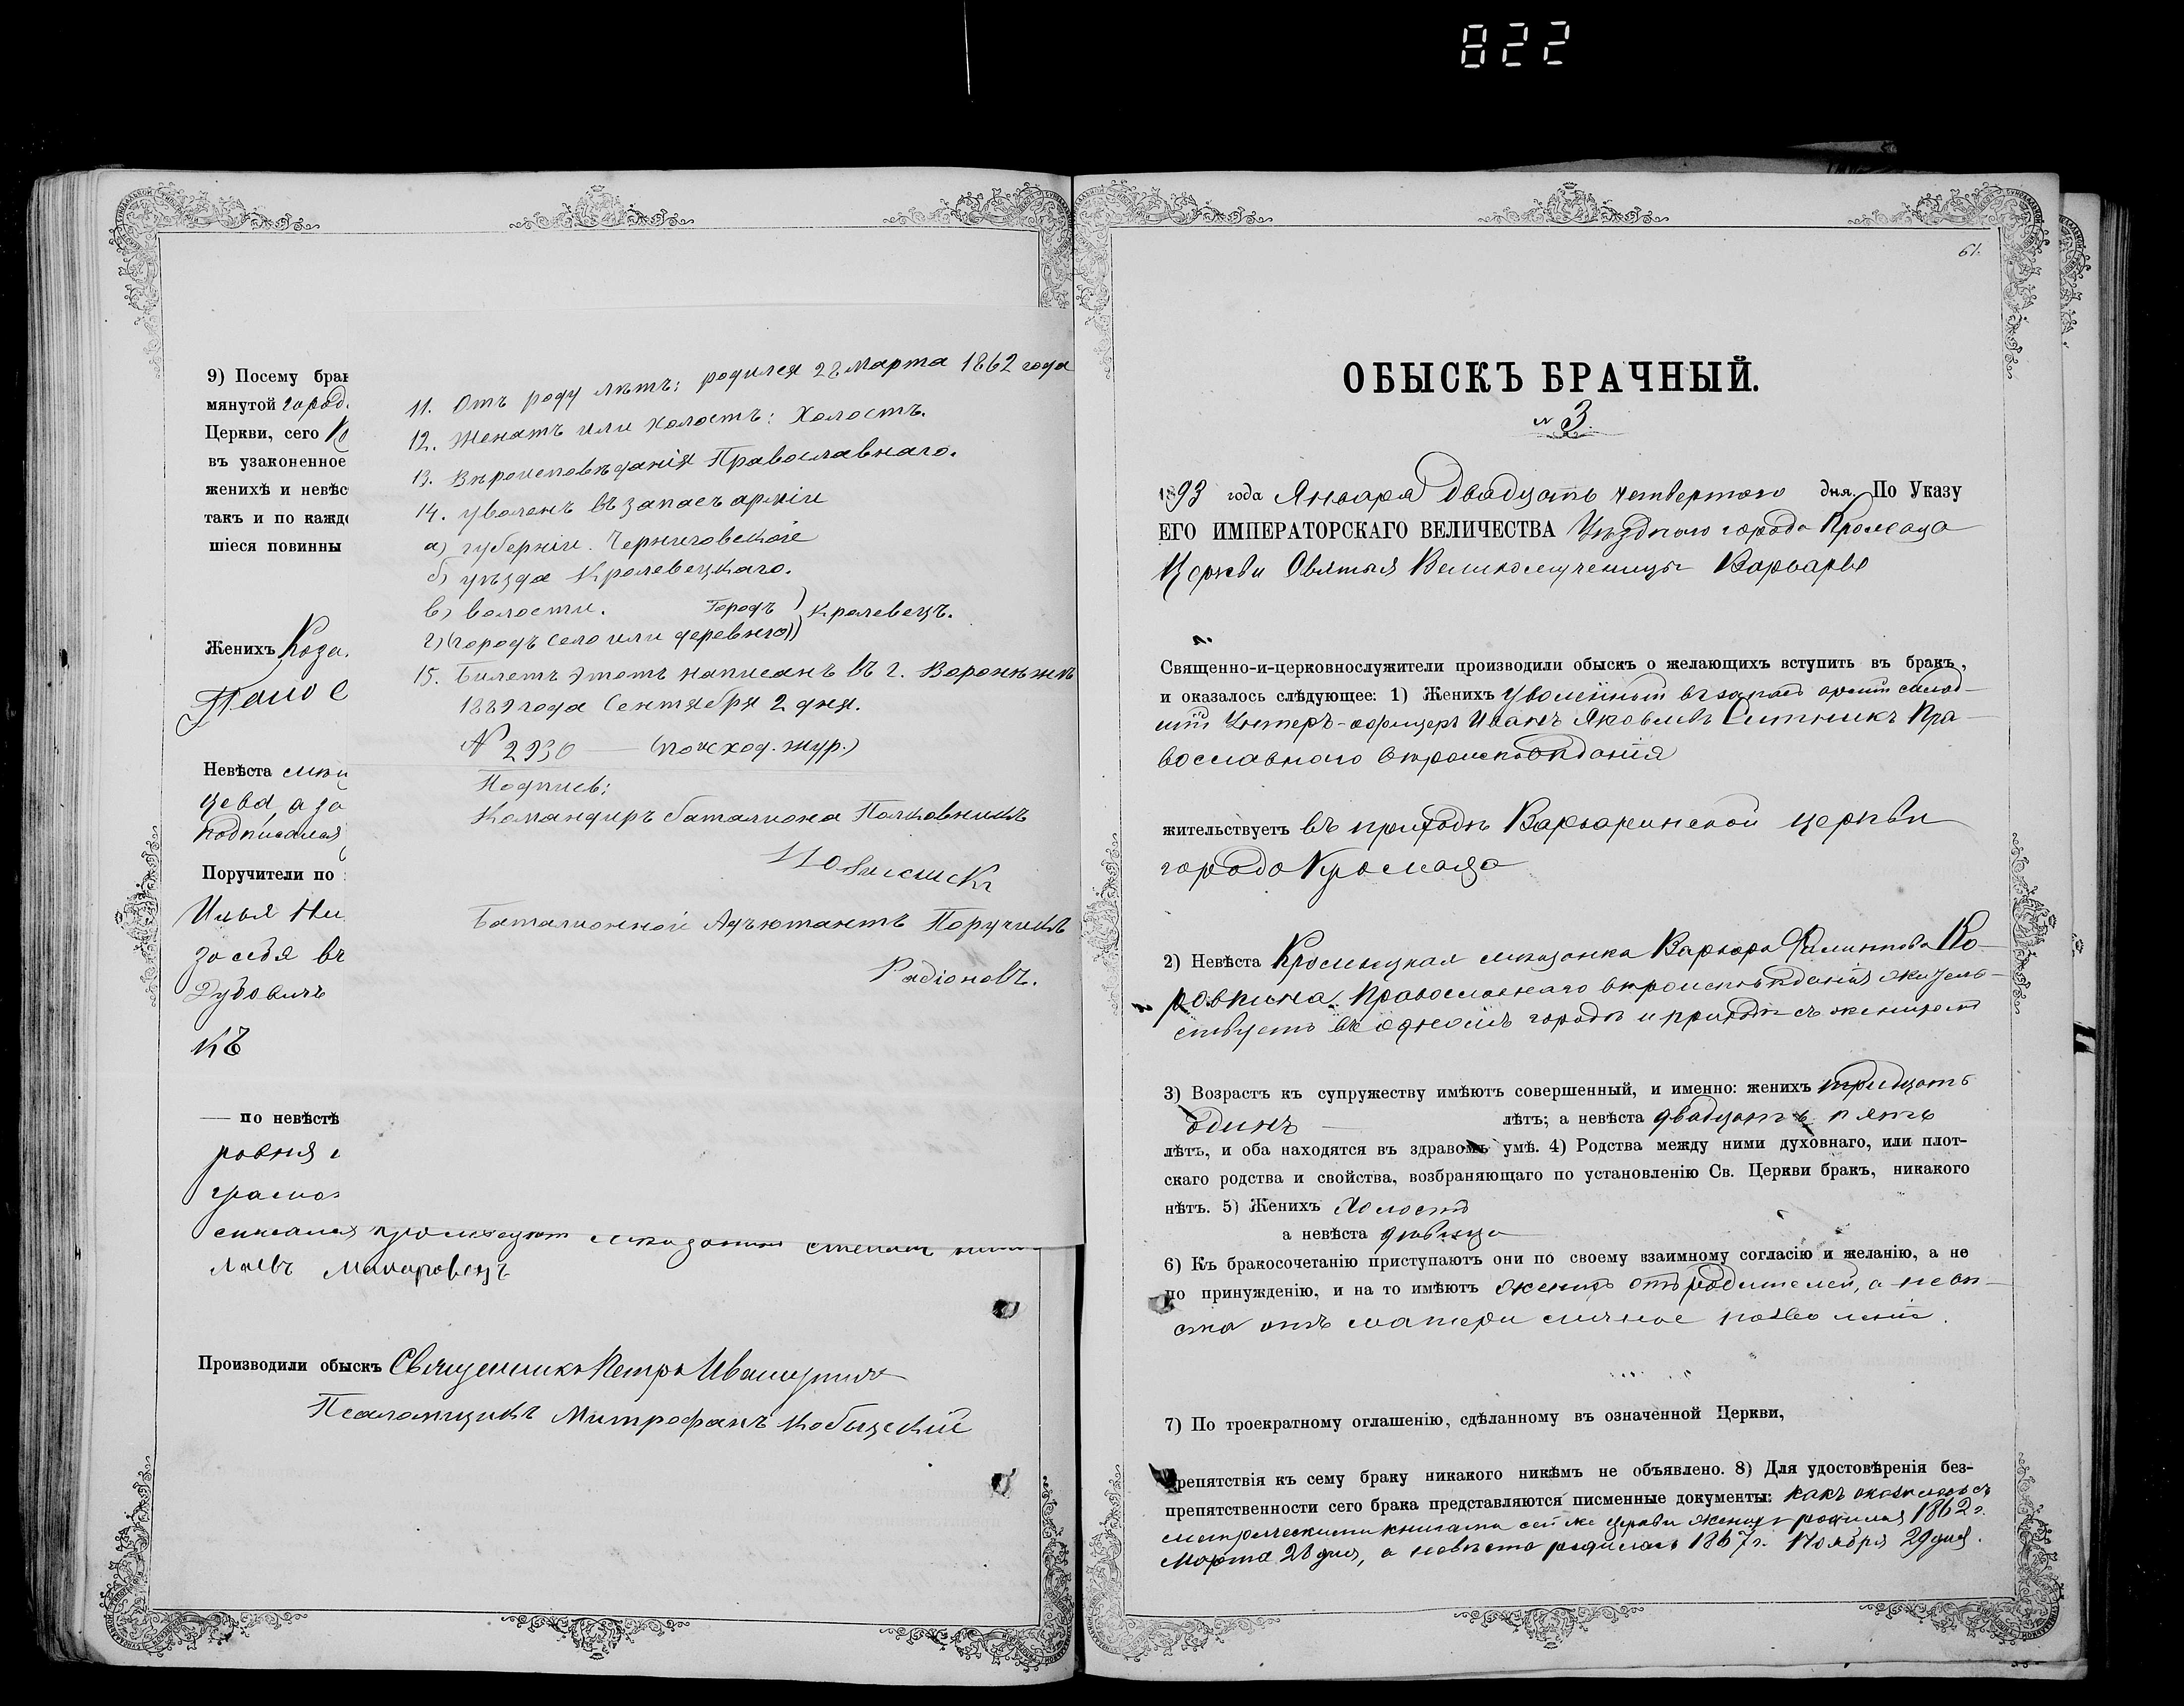 822
9) Посему брак
мянутой город.
Церкви, сего
въ узаконенное
женихѣ и невѣс
такъ и по кажд
шіеся повинны
Женихъ Коза.
Невѣста мѣщ
цева, а за
подписался
Поручители по
Илья Ни
за себя въ
Дубовичъ
къ
— по невѣстѣ
ровня
грамот
мѣщанинъ Степанъ
Макаровецъ
Производили обыскъ Священникъ Петръ
Псаломщикъ Митрофанъ Кобыцскій
11. Отъ роду лѣтъ: родился 28 Марта 1862 года
12. Женатъ или холостъ: Холостъ.
13. Вѣроисповѣданія Православнаго.
14. Уволенъ въ запасъ арміи
а) губерніи. Черниговской
б) уѣзда Кролевецкаго.
в) волости. Городъ } Кролевецъ.
г) (городъ село или деревню)
15. Билетъ этотъ написанъ въ г. Воронежѣ
1889 года Сентября 2 дня.
№ 2930 — (по исход. жур.)
Подпись:
Командиръ баталіона Полковникъ
Баталіонной Адъютантъ Поручикъ
Радіоновъ.
61.
ОБЫСКЪ БРАЧНЫЙ.
№ 3.
1893 года Января двадцать четвертого дня. По Указу
ЕГО ИМПЕРАТОРСКАГО ВЕЛИЧЕСТВА Уѣзднаго города Кролевца
Церкви Святыя Великомученицы Варвары
Священно-и-церковнослужители производили обыскъ о желающихъ вступить въ бракъ,
и оказалось слѣдующее: 1) Женихъ Уволенный въ запасъ арміи млад-
шій Унтеръ-офицеръ Иванъ Яковлевъ Ситникъ Пра-
вославнаго вѣроисповѣданія
жительствуетъ въ приходѣ Варваринской церкви
города Кролевца
2) Невѣста Кролевецкая мѣщанка Варвара Филиппова Ко-
ровкина, Православнаго вѣроисповѣданія жител-
ствуетъ въ одномъ городѣ и приходѣ съ женихомъ
3) Возрастъ къ супружеству имѣютъ совершенный, и именно: женихъ тридцать
одинъ — лѣтъ; а невѣста двадцать пять
лѣтъ, и оба находятся въ здравомъ умѣ. 4) Родства между ними духовнаго, или плот-
скаго родства и свойства, возбраняющаго по установленію Св. Церкви бракъ, никакого
нѣтъ. 5) Женихъ Холостъ
а невѣста дѣвица
6) Къ бракосочетанію приступаютъ они по своему взаимному согласію и желанію, а не
по принужденію, и на то имѣютъ женихъ отъ родителей, а невѣ-
ста отъ матери личное позволеніе.
7) По троекратному оглашенію, сдѣланному въ означенной Церкви,
препятствія къ сему браку никакого никѣмъ не объявлено. 8) Для удостовѣренія без-
препятственности сего брака представляются писменные документы: какъ оказалось съ
метрическими книгами сей же церкви женихъ родился 1862 г.
Марта 28 дня, а невѣста родилась 1867 г. Ноября 29 дня.